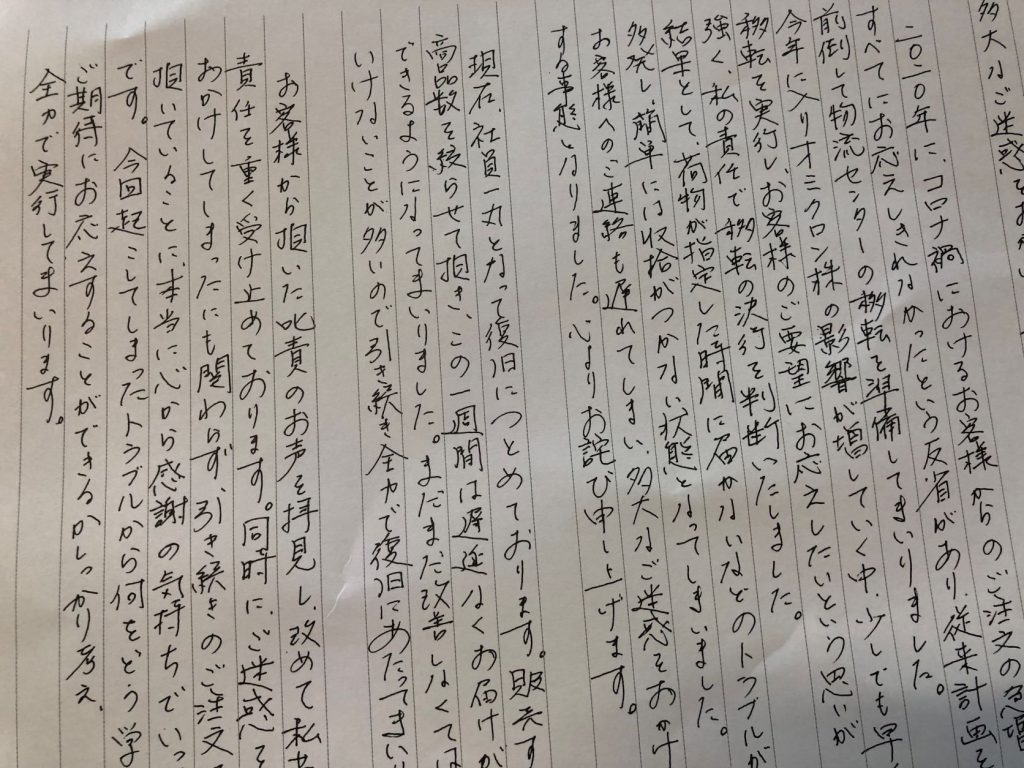 多大なご迷惑をおか
二〇二〇年に、コロナ禍におけるお客様からのご注文の急増
すべてにお応えしきれなかったという反省があり、従来計画を
前倒して物流センターの移転を準備してまいりました。
今年に入りオミクロン株の影響が増していく中、少しでも早
移転を実行し、お客様のご要望にお応えしたいという思いが
強く、私の責任で移転の決行を判断いたしました。
結果として、荷物が指定した時間に届かないなどのトラブルが
多発し、簡単には収拾がつかない状態となってしまいました。
お客様へのご連絡も遅れてしまい、多大なご迷惑をおかけ
する事態となりました。心よりお詫び申し上げます。
現在、社員一丸となって復旧につとめております。販売す
商品数を絞らせて頂き、この一週間は遅延なくお届けが
できるようになってまいりました。まだまだ改善しなくては
いけないことが多いので引き続き全力で復旧にあたってまい
お客様から頂いた叱責のお声を拝見し、改めて私
責任を重く受け止めております。同時に、ご迷惑を
おかけしてしまったにも関わらず、引き続きのご注文
頂いていることに、本当に心から感謝の気持ちでいっ
です。今回起こしてしまったトラブルから何を、どう学
ご期待にお応えすることができるかしっかり考え、
全力で実行してまいります。